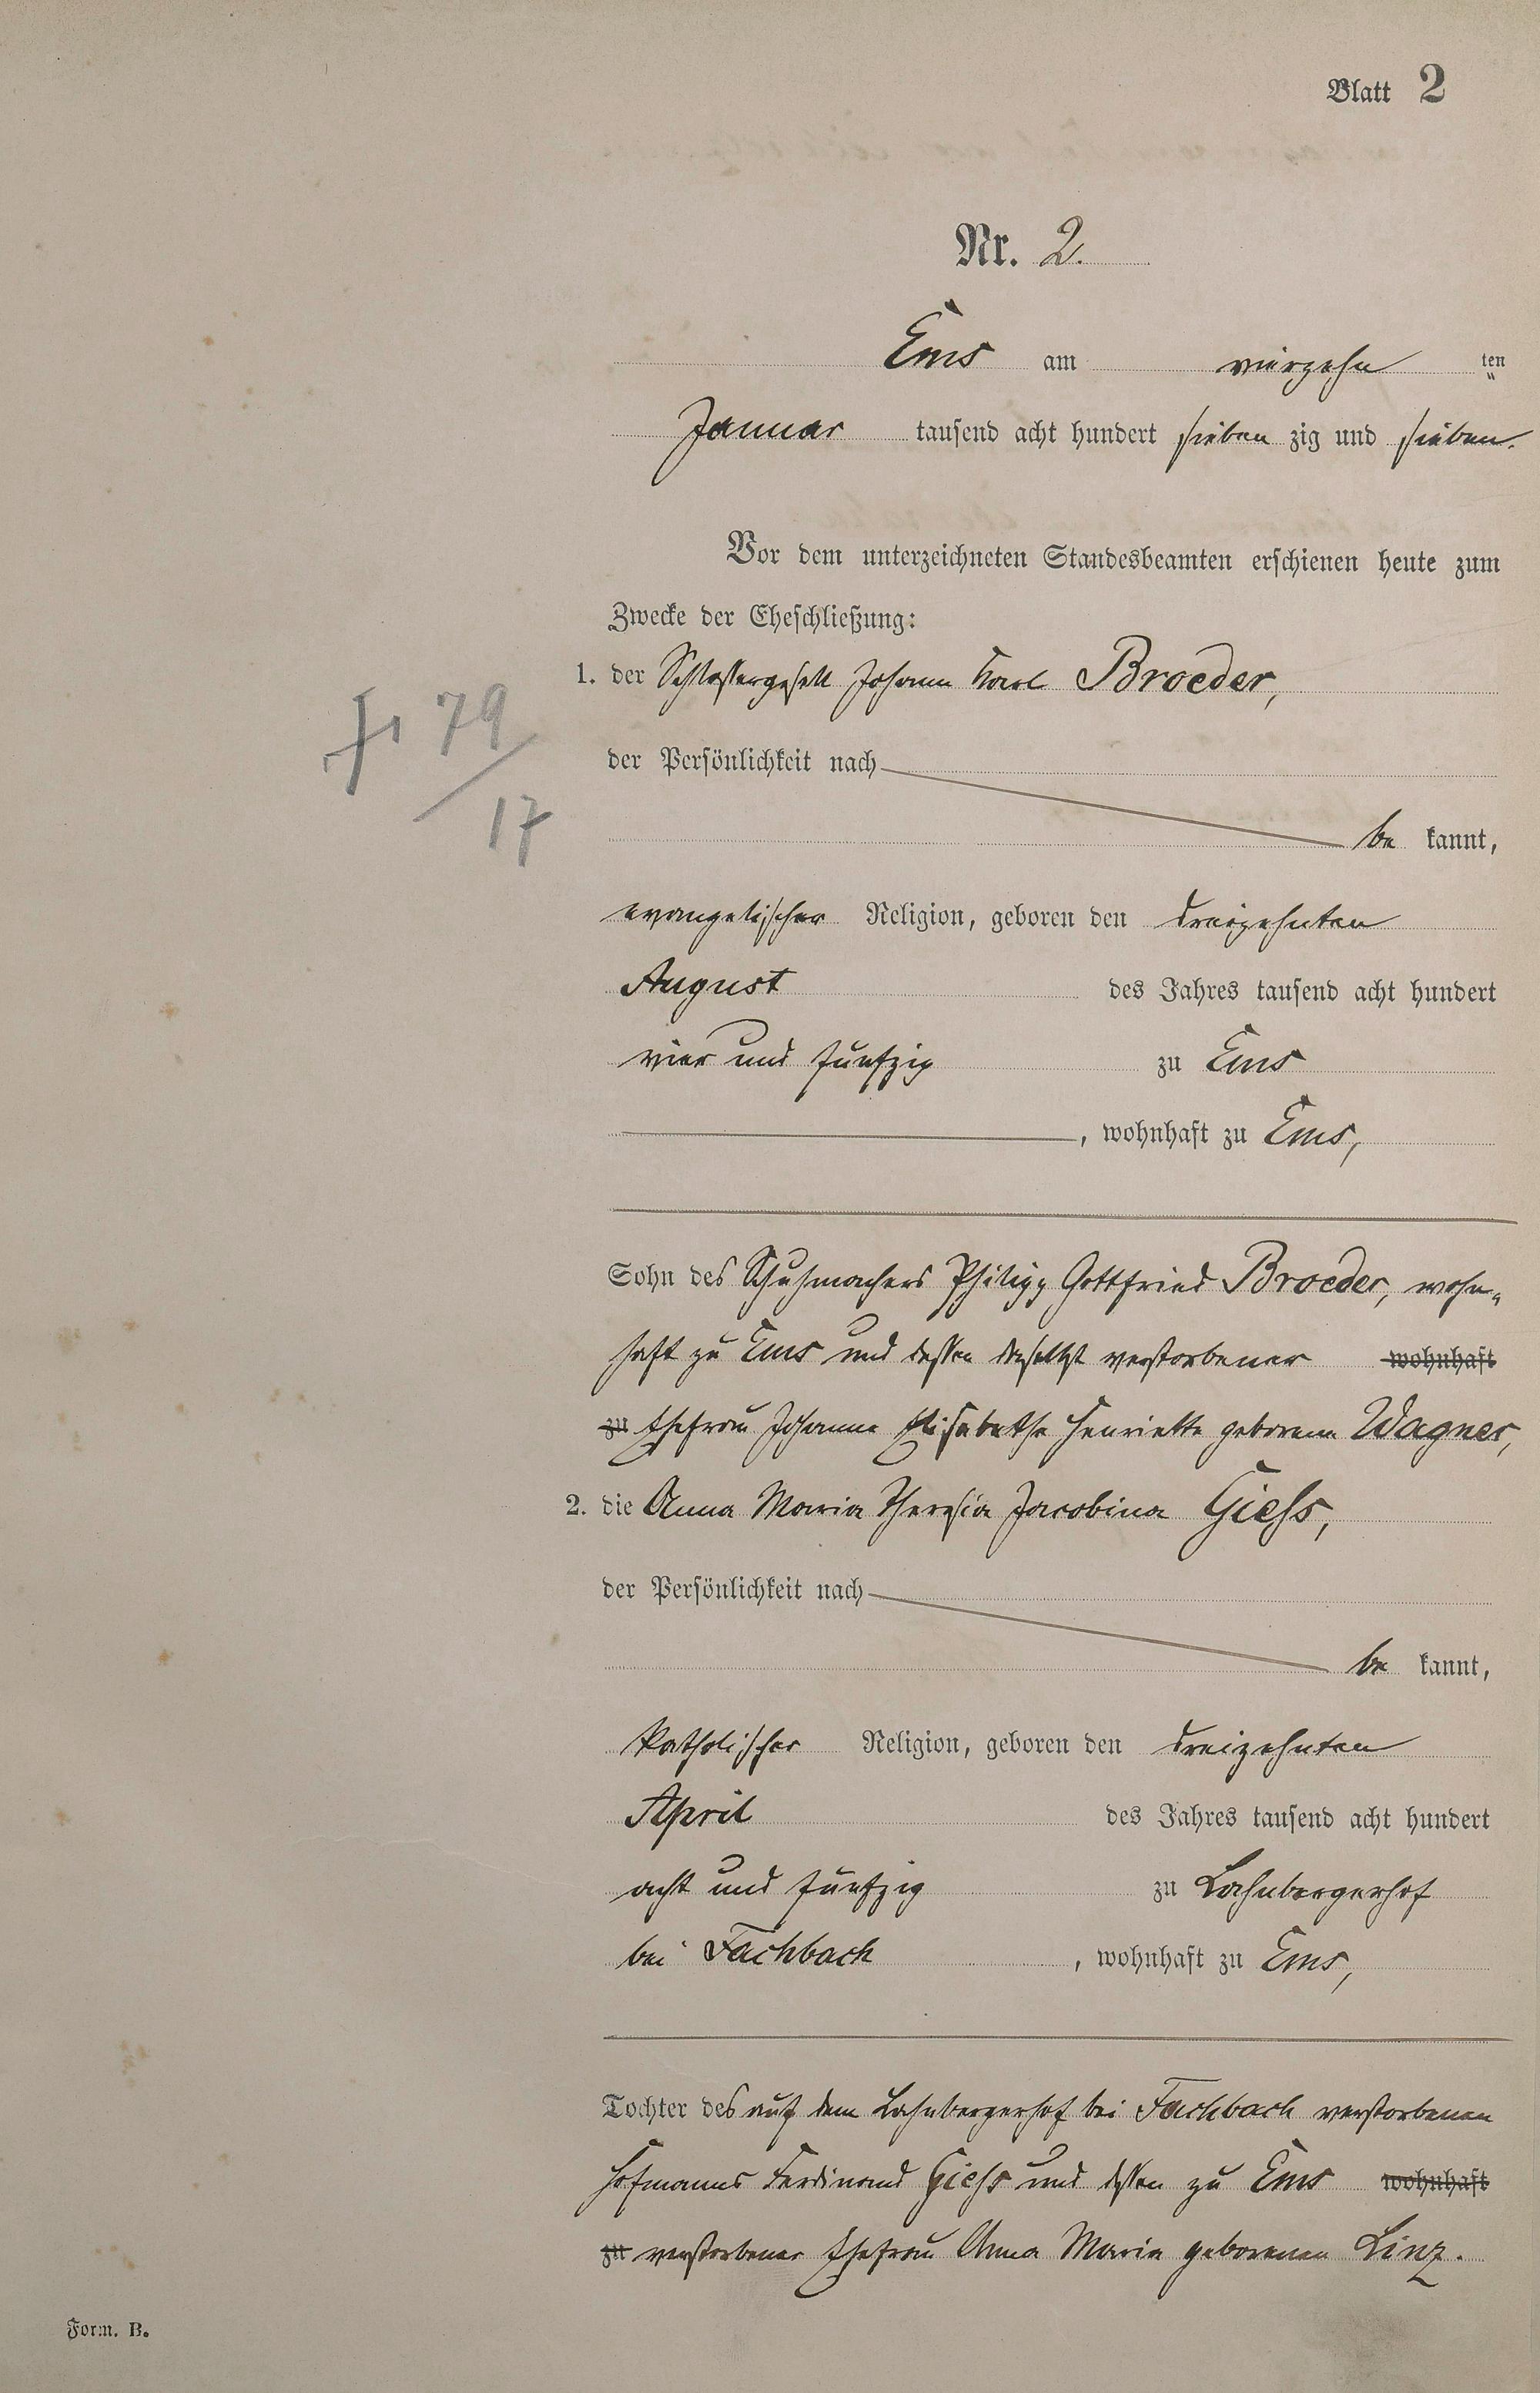 Blatt 2
Nr. 2.
Ems am vierzehn ten
Januar tausend acht hundert sieben zig und sieben.
Vor dem unterzeichneten Standesbeamten erschienen heute zum
Zwecke der Eheschließung:
1. der Schlossergesell Johann Karl Broeder,
der Persönlichkeit nach
79
17
be kannt,
evangelischer Religion, geboren den dreizehnten
August des Jahres tausend acht hundert
vier und fünfzig zu Ems
, wohnhaft zu Ems,
Sohn des Schuhmachers Philipp Gottfried Broeder, wohn-
haft zu Ems und dessen daselbst verstorbener wohnhaft
zu Ehefrau Johanna Elisabetha Henriette geborene Wagner,
2. die Anna Maria Theresia Jacobina Giehs,
der Persönlichkeit nach
be kannt,
katholischer Religion, geboren den dreizehnten
April des Jahres tausend acht hundert
acht und fünfzig zu Lahnbergerhof
bei Fachbach, wohnhaft zu Ems,
Tochter des auf dem Lahnbergerhof bei Fachbach verstorbenen
Hofmanns Ferdinand Giehs und dessen zu Ems wohnhaft
zu verstorbener Ehefrau Anna Maria geborenen Linz.
Form. B.